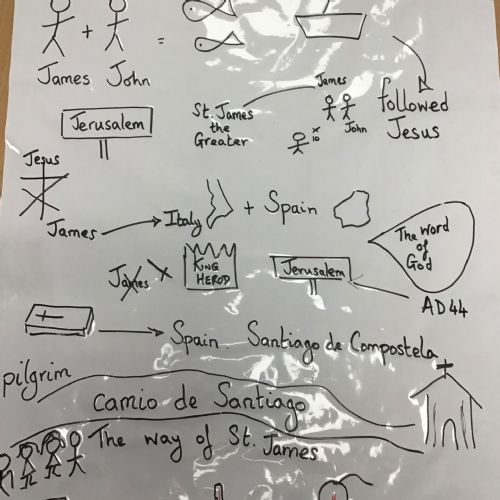 +
=
James John
James
St. James
the
Greater
x
10
John
followed
Jesus
Jerusalem
Jesus
James
Italy + Spain
The word
of
God
James
KING
HEROD
Jerusalem
AD 44
Spain. Santiago de Compostela
pilgrim
Camio de Santiago
The way of St. James